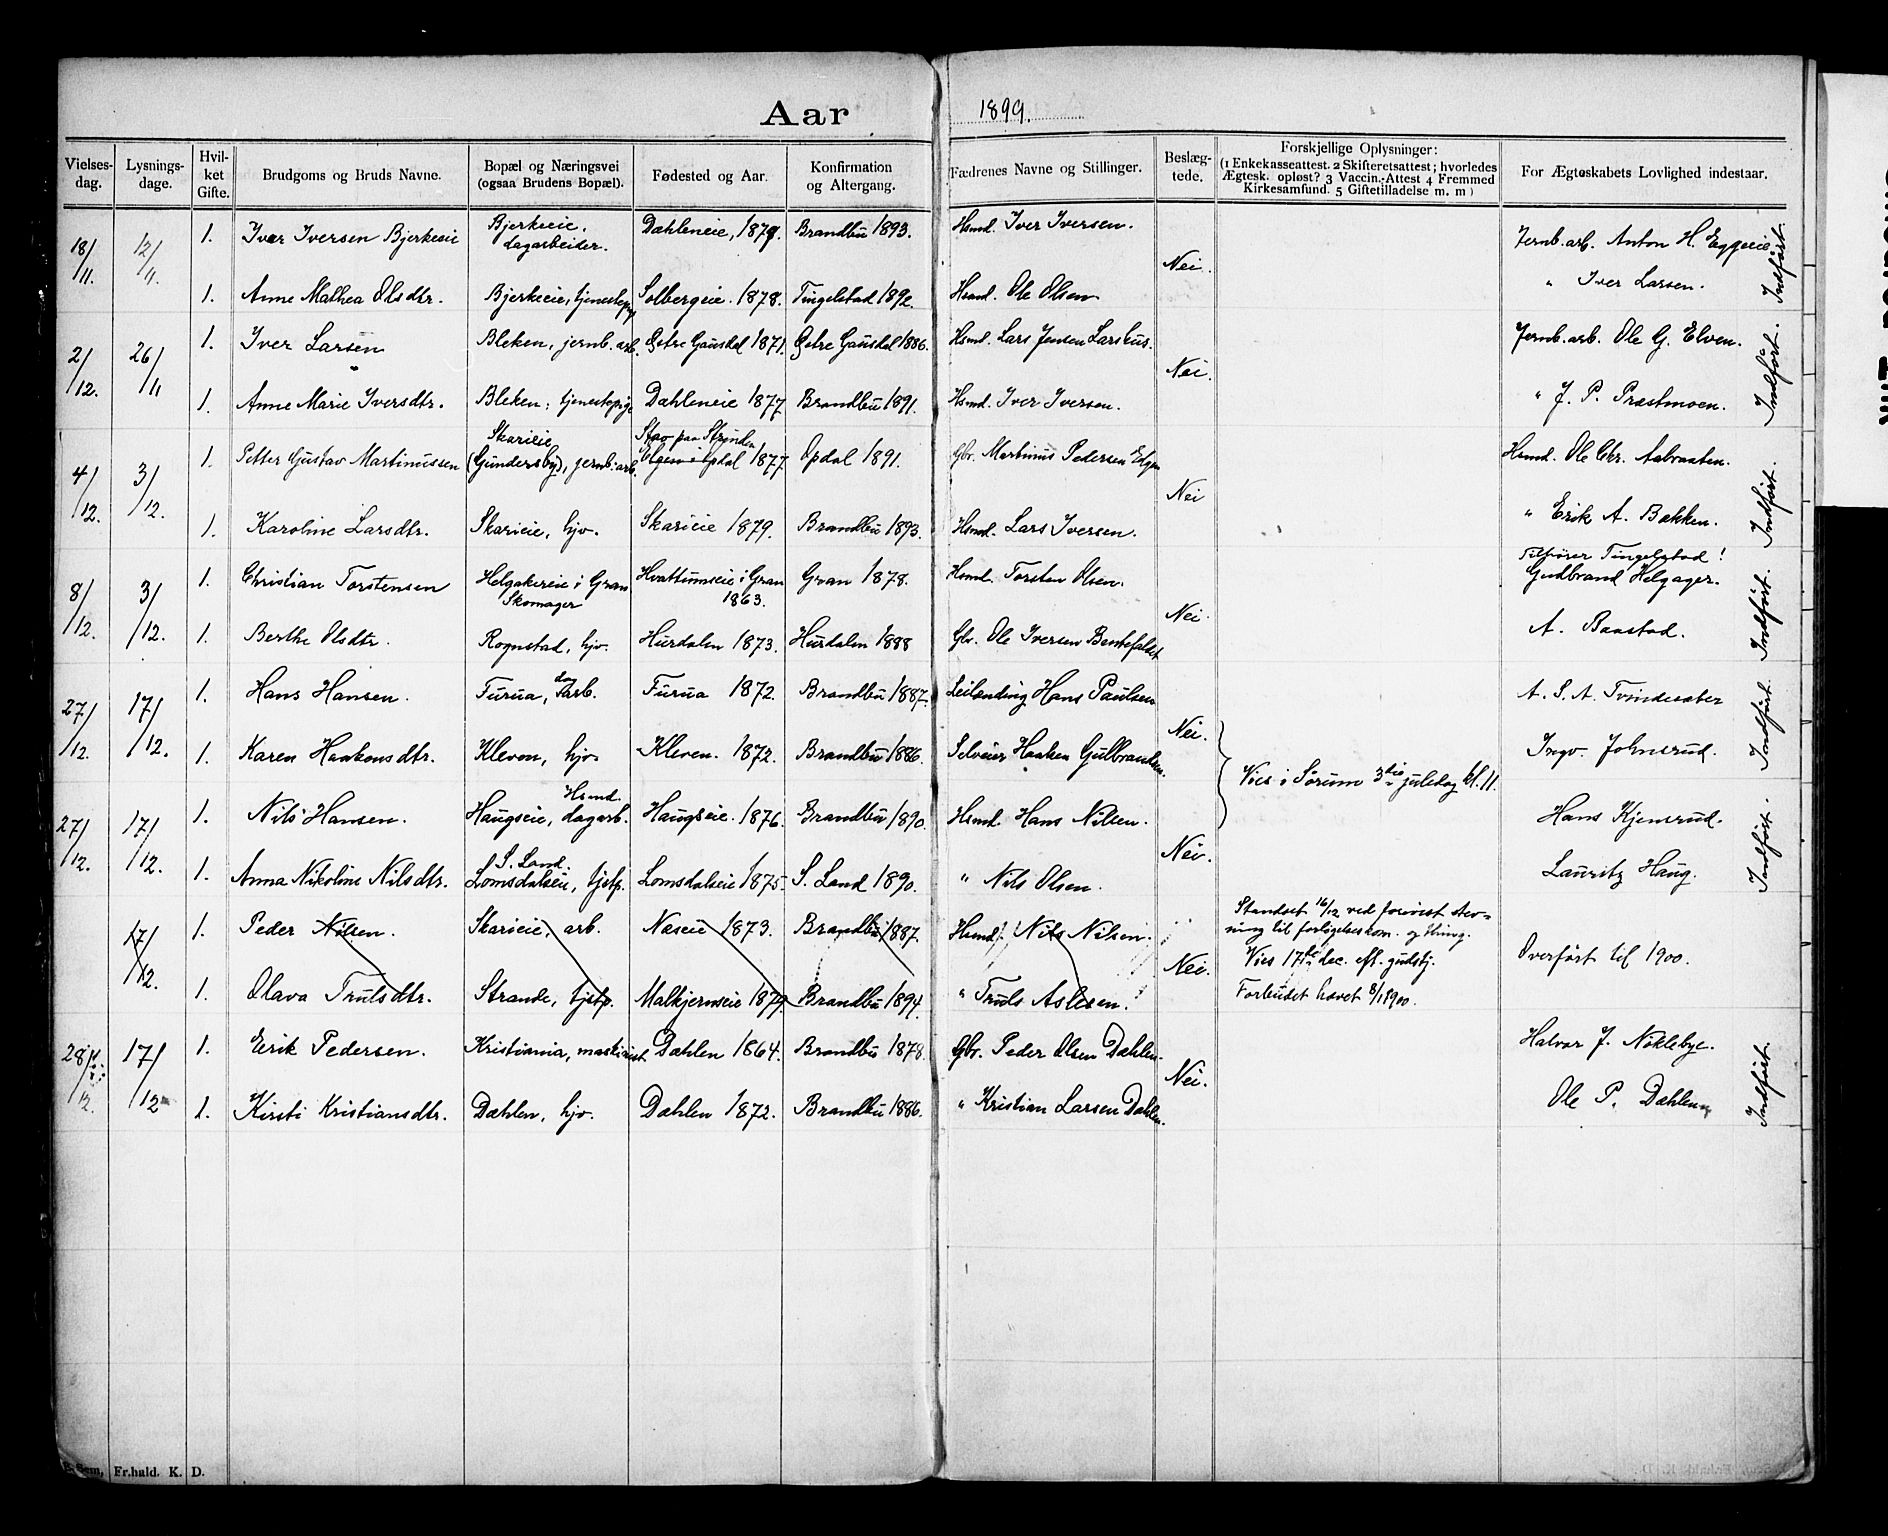 Aar 1899.
Vielses-dag. Lysnings-dage. Hvil-ket Gifte. Brudgoms og Bruds Navne. Bopæl og Næringsvei (ogsaa Brudens Bopæl). Fødested og Aar. Konfirmation og Altergang. Fædrenes Navne og Stillinger. Beslæg-tede. Forskjellige Oplysninger: (1 Enkekasseattest. 2 Skifteretsattest; hvorledes Ægtesk. opløst? 3 Vaccin.-Attest 4 Fremmed Kirkesamfund. 5 Giftetilladelse m. m) For Ægteskabets Lovlighed indestaar.
18/11. 12/11. 1. Iver Iversen Bjerkeeie Bjerkeeie, dagarbeider. Dæhleneie, 1879. Brandbu 1893. Hsmd. Iver Iversen. Nei. Jernb. arb. Anton H. Eggeeie Indført.
1. Anne Mathea Olsdtr. Bjerkeeie, tjenestepige Solbergeie. 1878. Tingelstad 1892. Hsmd. Ole Olsen " Iver Larsen.
2/12. 26/11 1. Iver Larsen Bleken, jernb. arb. Østre Gausdal 1871. Østre Gausdal 1886. Hsmd. Lars Jensen Larshus. Nei. Jernb. arb. Ole G. Elven. Indført.
1. Anne Marie Iversdtr. Bleken, tjenestepige Dæhleneie 1877 Brandbu 1891. Hsmd. Iver Iversen. " J. P. Præstmoen.
4/12. 3/12. 1. Petter Gustav Martinussen Skarieie (Gundersby), jernb. arb. Stav paa Strinden 1877. Opdal 1891. Gbr. Martinus Pedersen Nei Hsmd. Ole Chr. Aabraaten. Indført.
1. Karoline Larsdtr. Skarieie, hjv. Skarieie 1879. Brandbu 1893. Hsmd. Lars Iversen. " Erik A. Bakken.
8/12. 3/12. 1. Christian Torstensen Helgakereie i Gran Skomager Hvattumseie i Gran 1863. Gran 1878. Hsmd. Torsten Olsen. Nei. Tilhører Tingelstad! Gudbrand Helgager. Indført.
1. Berthe Olsdtr. Rognstad, hjv. Hurdalen 1873. Hurdalen 1888 Gbr. Ole Iversen A. Baastad.
27/12. 17/12. 1. Hans Hansen. Furua, dagarb. Furua 1872. Brandbu 1887. Leilending Hans Paulsen Nei. A. S. A. Tvindesæter Indført.
1. Karen Haakonsdtr. Kleven, hjv. Kleven. 1872. Brandbu 1886. Selveier Haaken Gulbrandsen. Vies i Sørum 3die juledag kl. 11. Ingv. Johnsrud.
27/12. 17/12. 1. Nils Hansen. Haugseie, Hsmd. dagarb. Haugseie. 1876. Brandbu 1890. Hsmd. Hans Nilsen. Nei. Hans Kjemsrud. Indført.
1. Anna Nikoline Nilsdtr. S. Land. Lomsdalseie, tjstp. Lomsdalseie 1875. S. Land 1890. " Nils Olsen. Lauritz Haug.
17/12. 1. Peder Nilsen. Skarieie, arb. Næseie 1873. Brandbu 1887. Hsmd. Nils Nilsen. Nei. Standset 16/12 ved forevist stev-
ning til forligelseskom. og thing.
Vies 17de dec. eft. gudstj. Overført til 1900.
1. Olava Trulsdtr. Strande, tjstp. Malkjernseie 1879. Brandbu 1894. " Truls Aslesen. Forbudet hævet 8/1 1900.
28/12. 17/12 1. Erik Pedersen. Kristiania, maskinist Dæhlen 1864. Brandbu 1878. Gbr. Peder Olsen Dæhlen. Nei. Halvor J. Nøklebye. Indført.
1. Kirsti Kristiansdtr. Dæhlen, hjv. Dæhlen 1872. Brandbu 1886. " Kristian Larsen Dæhlen. Ole P. Dæhlen
Sem, Fr.hald. K. D.